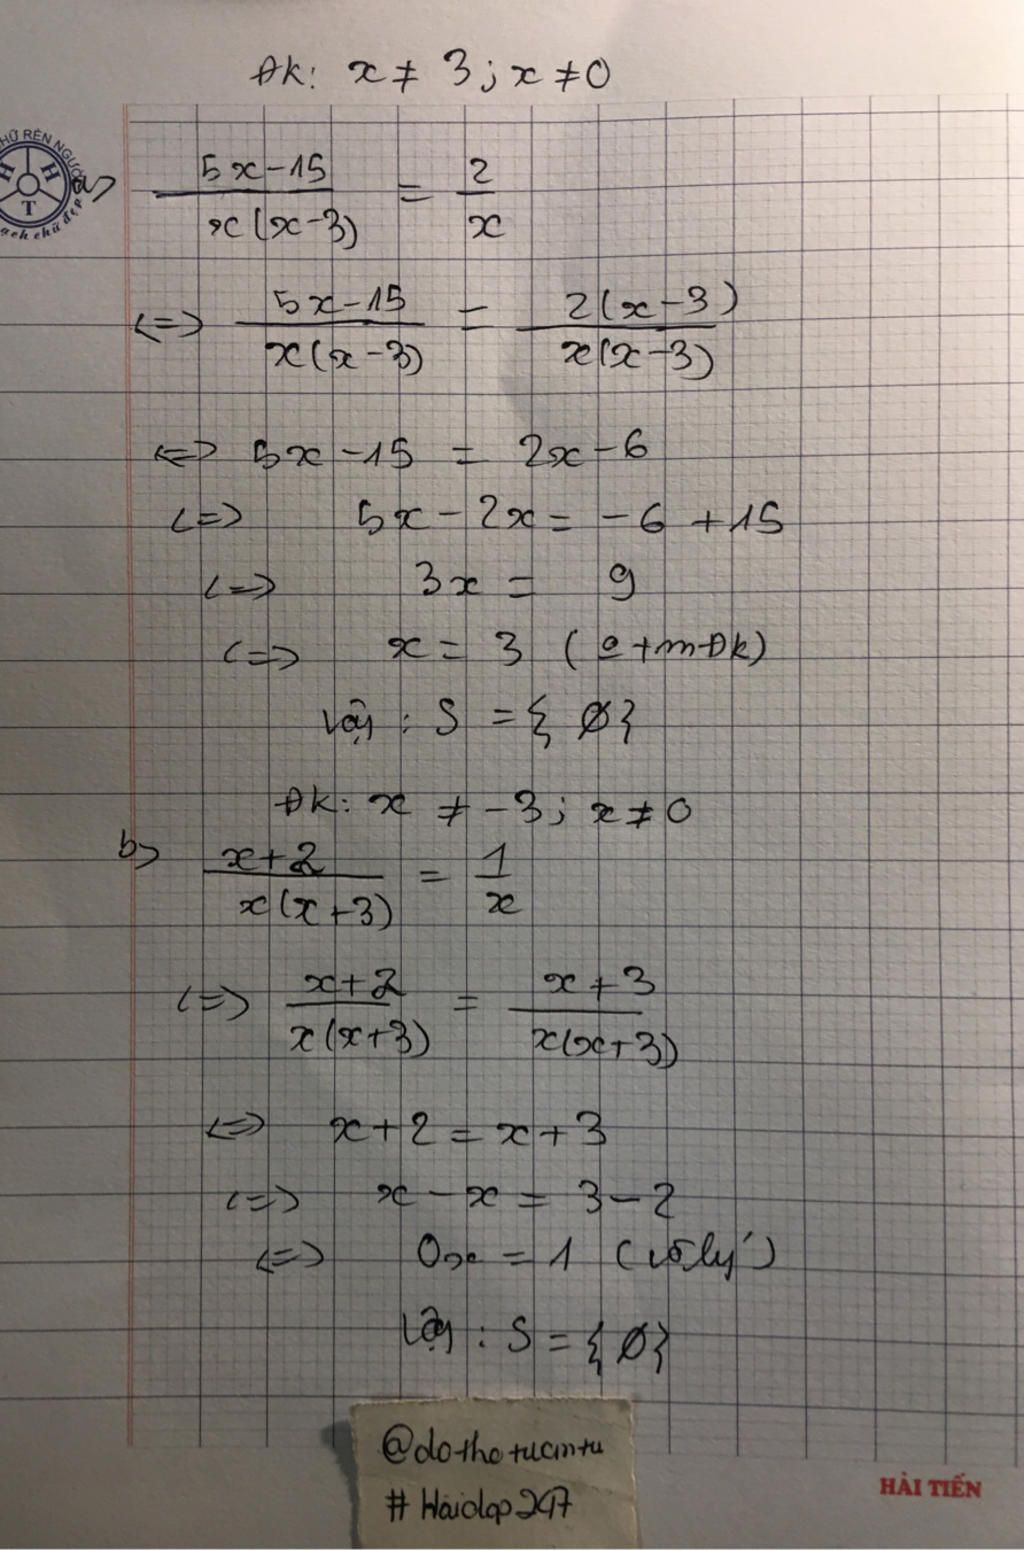 ĐK: x ≠ 3; x ≠ 0
CHỮ RÈN NGƯỜI
H H T
a> (5x-15)/(x(x-3)) = 2/x
<=> (5x-15)/(x(x-3)) = (2(x-3))/(x(x-3))
<=> 5x-15 = 2x-6
<=> 5x - 2x = -6 +15
<=> 3x = 9
<=> x = 3 (o +m ĐK)
Vậy : S = { Ø }
ĐK: x ≠ -3; x ≠ 0
b> (x+2)/(x(x+3)) = 1/x
<=> (x+2)/(x(x+3)) = (x+3)/(x(x+3))
<=> x+2 = x+3
<=> x - x = 3-2
<=> 0x = 1 (vô lý)
Vậy : S = { Ø }
@dothotucmtu
# Hoidap247
HẢI TIẾN